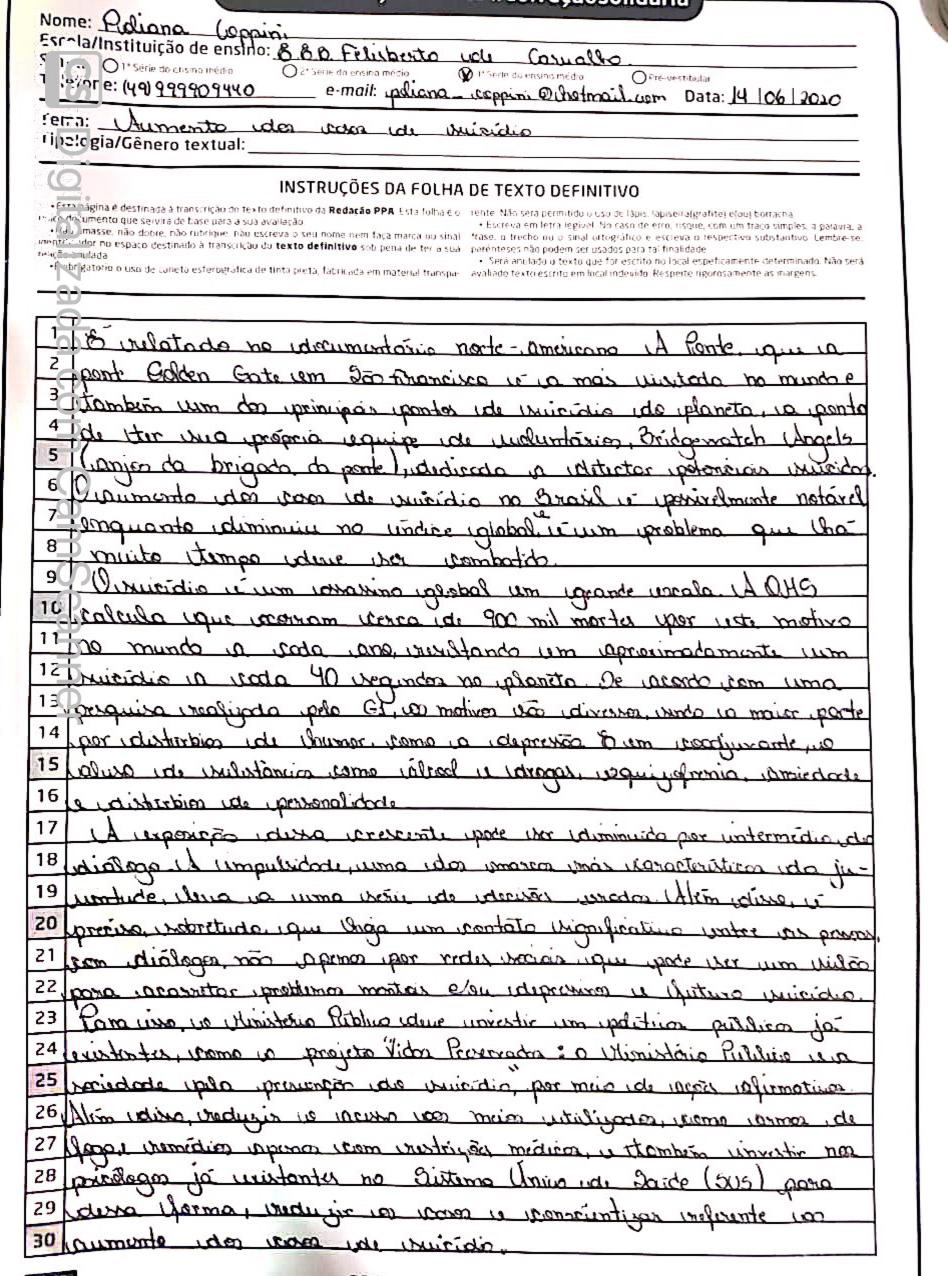 Nome: Poliana Coppini
Escola/Instituição de ensino: E.E.B. Felisberto de Carvalho
1ª Série do ensino médio 2ª Série do ensino médio Série do ensino médio Pré-vestibular
Telefone: (49) 999909440 e-mail: poliana_coppini@hotmail.com Data: 14/06/2020
Tema: Aumento dos casos de suicídio
Tipologia/Gênero textual:
Digitalizada com CamScanner
CS
INSTRUÇÕES DA FOLHA DE TEXTO DEFINITIVO
• Esta página é destinada à transcrição do texto definitivo da Redação PPA. Esta folha é o
único documento que servirá de base para a sua avaliação.
• Não amasse, não dobre, não rubrique, não escreva o seu nome nem faça marca ou sinal
identificador no espaço destinado à transcrição do texto definitivo sob pena de ter a sua
redação anulada.
• É obrigatório o uso de caneta esferográfica de tinta preta, fabricada em material transpa-
rente. Não será permitido o uso de lápis, lapiseira(grafite) e(ou) borracha.
• Escreva em letra legível. No caso de erro, risque, com um traço simples, a palavra, a
frase, o trecho ou o sinal ortográfico e escreva o respectivo substantivo. Lembre-se,
parênteses não podem ser usados para tal finalidade.
• Será anulado o texto que for escrito no local especificamente determinado. Não será
avaliado texto escrito em local indevido. Respeite rigorosamente as margens.
1 É relatado no documentário norte-americano A Ponte, que a
2 pont Golden Gate em São Francisco é a mas visitada no mundo e
3 também um dos principais pontos de suicídio do planeta, a ponto
4 de ter sua própria equipe de voluntários, Bridgewatch Angels
5 (anjos da brigada da ponte), dedicada a detectar potenciais suicidas.
6 O aumento dos casos de suicídio no Brasil é possivelmente notável
7 enquanto diminuiu no índice global, e é um problema que há
8 muito tempo deve ser combatido.
9 O suicídio é um assassino global em grande escala. A OMS
10 calcula que ocorram cerca de 900 mil mortes por este motivo
11 no mundo a cada ano, resultando em aproximadamente um
12 suicídio a cada 40 segundos no planeta. De acordo com uma
13 pesquisa realizada pelo G1, os motivos são diversos, sendo a maior parte
14 por distúrbios de humor, como a depressão E em coadjuvante, o
15 abuso de substância como álcool e drogas, esquizofrenia, ansiedade
16 e distúrbios de personalidade.
17 A exposição dessa crescente pode ser diminuida por intermédio do
18 diálogo. A impulsidade, uma das marcas mas características da ju-
19 ventude, leva a uma série de decisões erradas. Além disso, é
20 preciso, sobretudo, que haja um contato significativo entre as pessoas,
21 com diálogos, não apenas por redes sociais, que pode ser um vilão
22 para acarretar problemas mentais e/ou depressivos e futuro suicídio.
23 Para isso, o Ministério Público deve investir em políticas públicas já
24 existentes, como o projeto "Vidas Preservadas: o Ministério Público e a
25 sociedade pela prevenção do suicídio", por meio de ações afirmativas.
26 Além disso, reduzir o acesso aos meios utilizados, como armas de
27 fogo, e remédios apenas com restrições médicas, e também investir nos
28 psicólogos já existentes no Sistema Único de Saúde (SUS) para
29 dessa forma, reduzir os casos e conscientizar referente ao
30 aumento dos casos de suicídio.